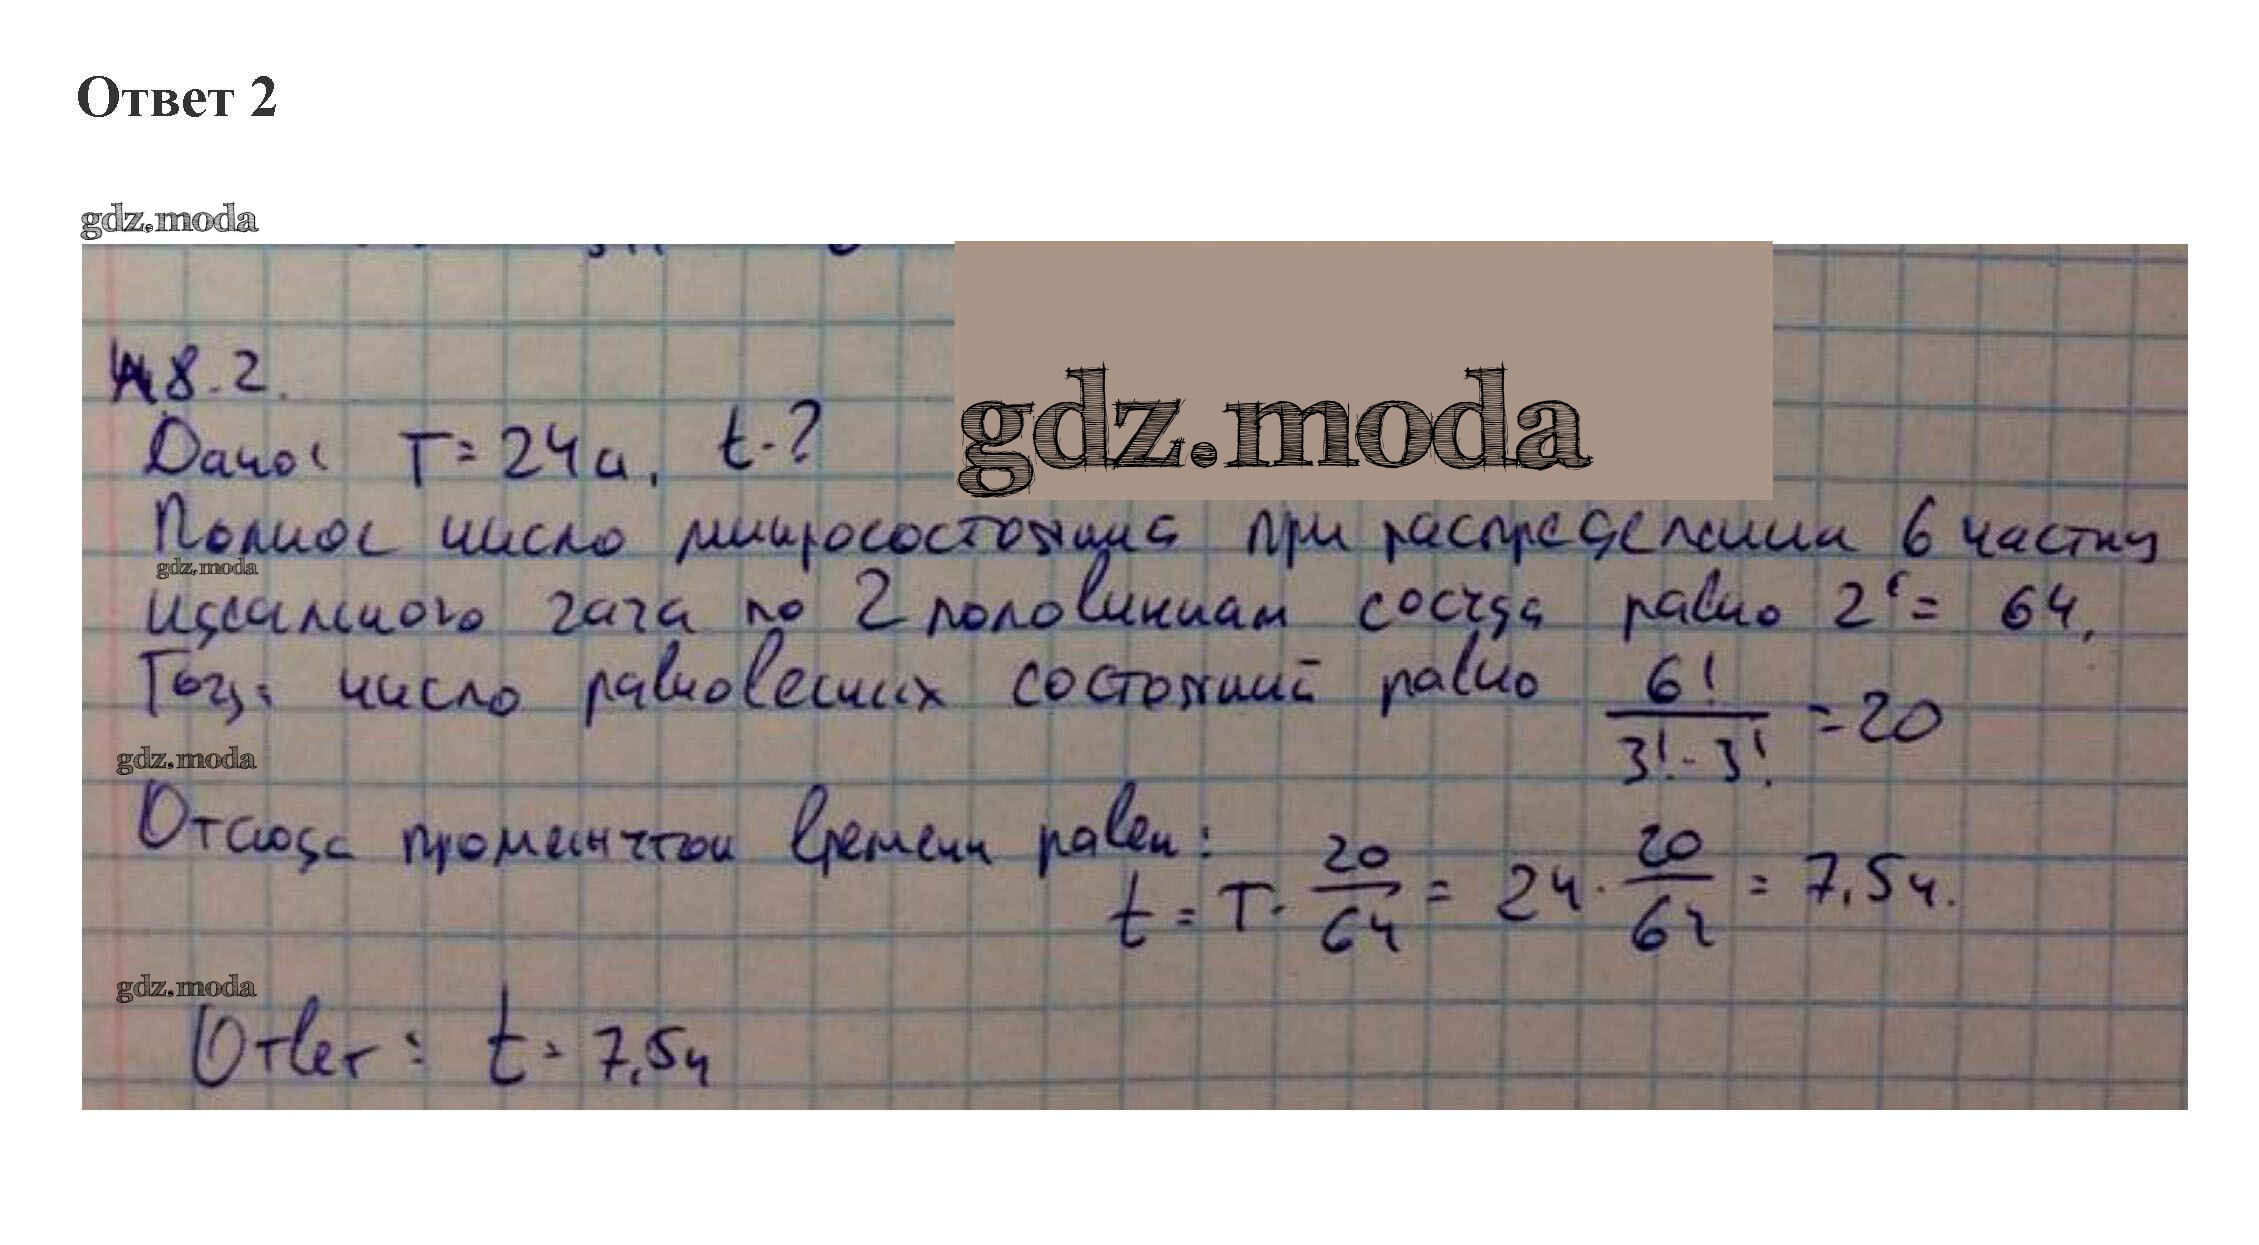 Ответ 2
gdz.moda
48.2.
gdz.moda
Дано: T = 24 ч, t - ?
Полное число микросостояний при распределении 6 частиц
gdz.moda
идеального газа по 2 половинкам сосуда равно 2⁶ = 64.
Тогда число равновесных состояний равно 6! / 3! · 3! = 20
gdz.moda
Отсюда промежуток времени равен:
t = T · 20/64 = 24 · 20/64 = 7,5 ч.
gdz.moda
Ответ: t = 7,5 ч